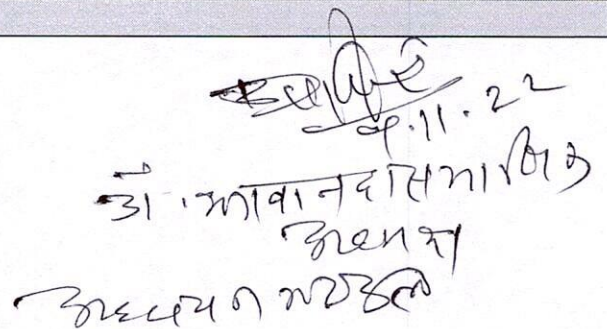 ९.11.22
डॉ. भगवानदास माणिक
अध्यक्ष
अध्ययन मण्डल